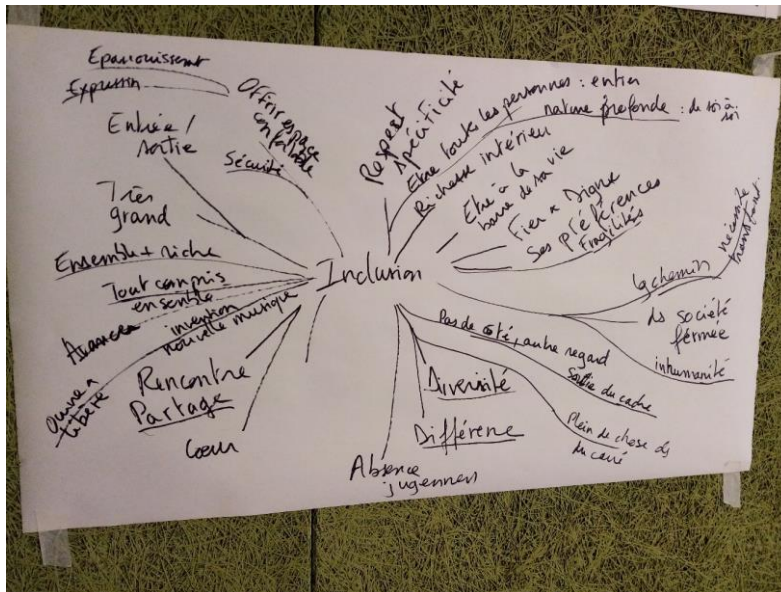 Epanouissement
Expression
Offrir espace
confortable
Sécurité
Entrée /
sortie
Très
grand
Ensemble + riche
Tout compris
ensemble
Avancer
invention
nouvelle musique
Ouvrir
liberté
Rencontre
Partage
Cœur
Inclusion
Respect
spécificité
Etre toutes les personnes : entier
nature profonde : de soi à
soi
Richesse intérieur
Etre à la
barre de sa vie
Fier Digne
Ses préférences
Fragilités
chemin
nécessite
ds société
fermée
inhumanité
Pas de côté, autre regard
Sortie du cadre
plein de chose ds
du carré
Diversité
Différence
Absence
jugement